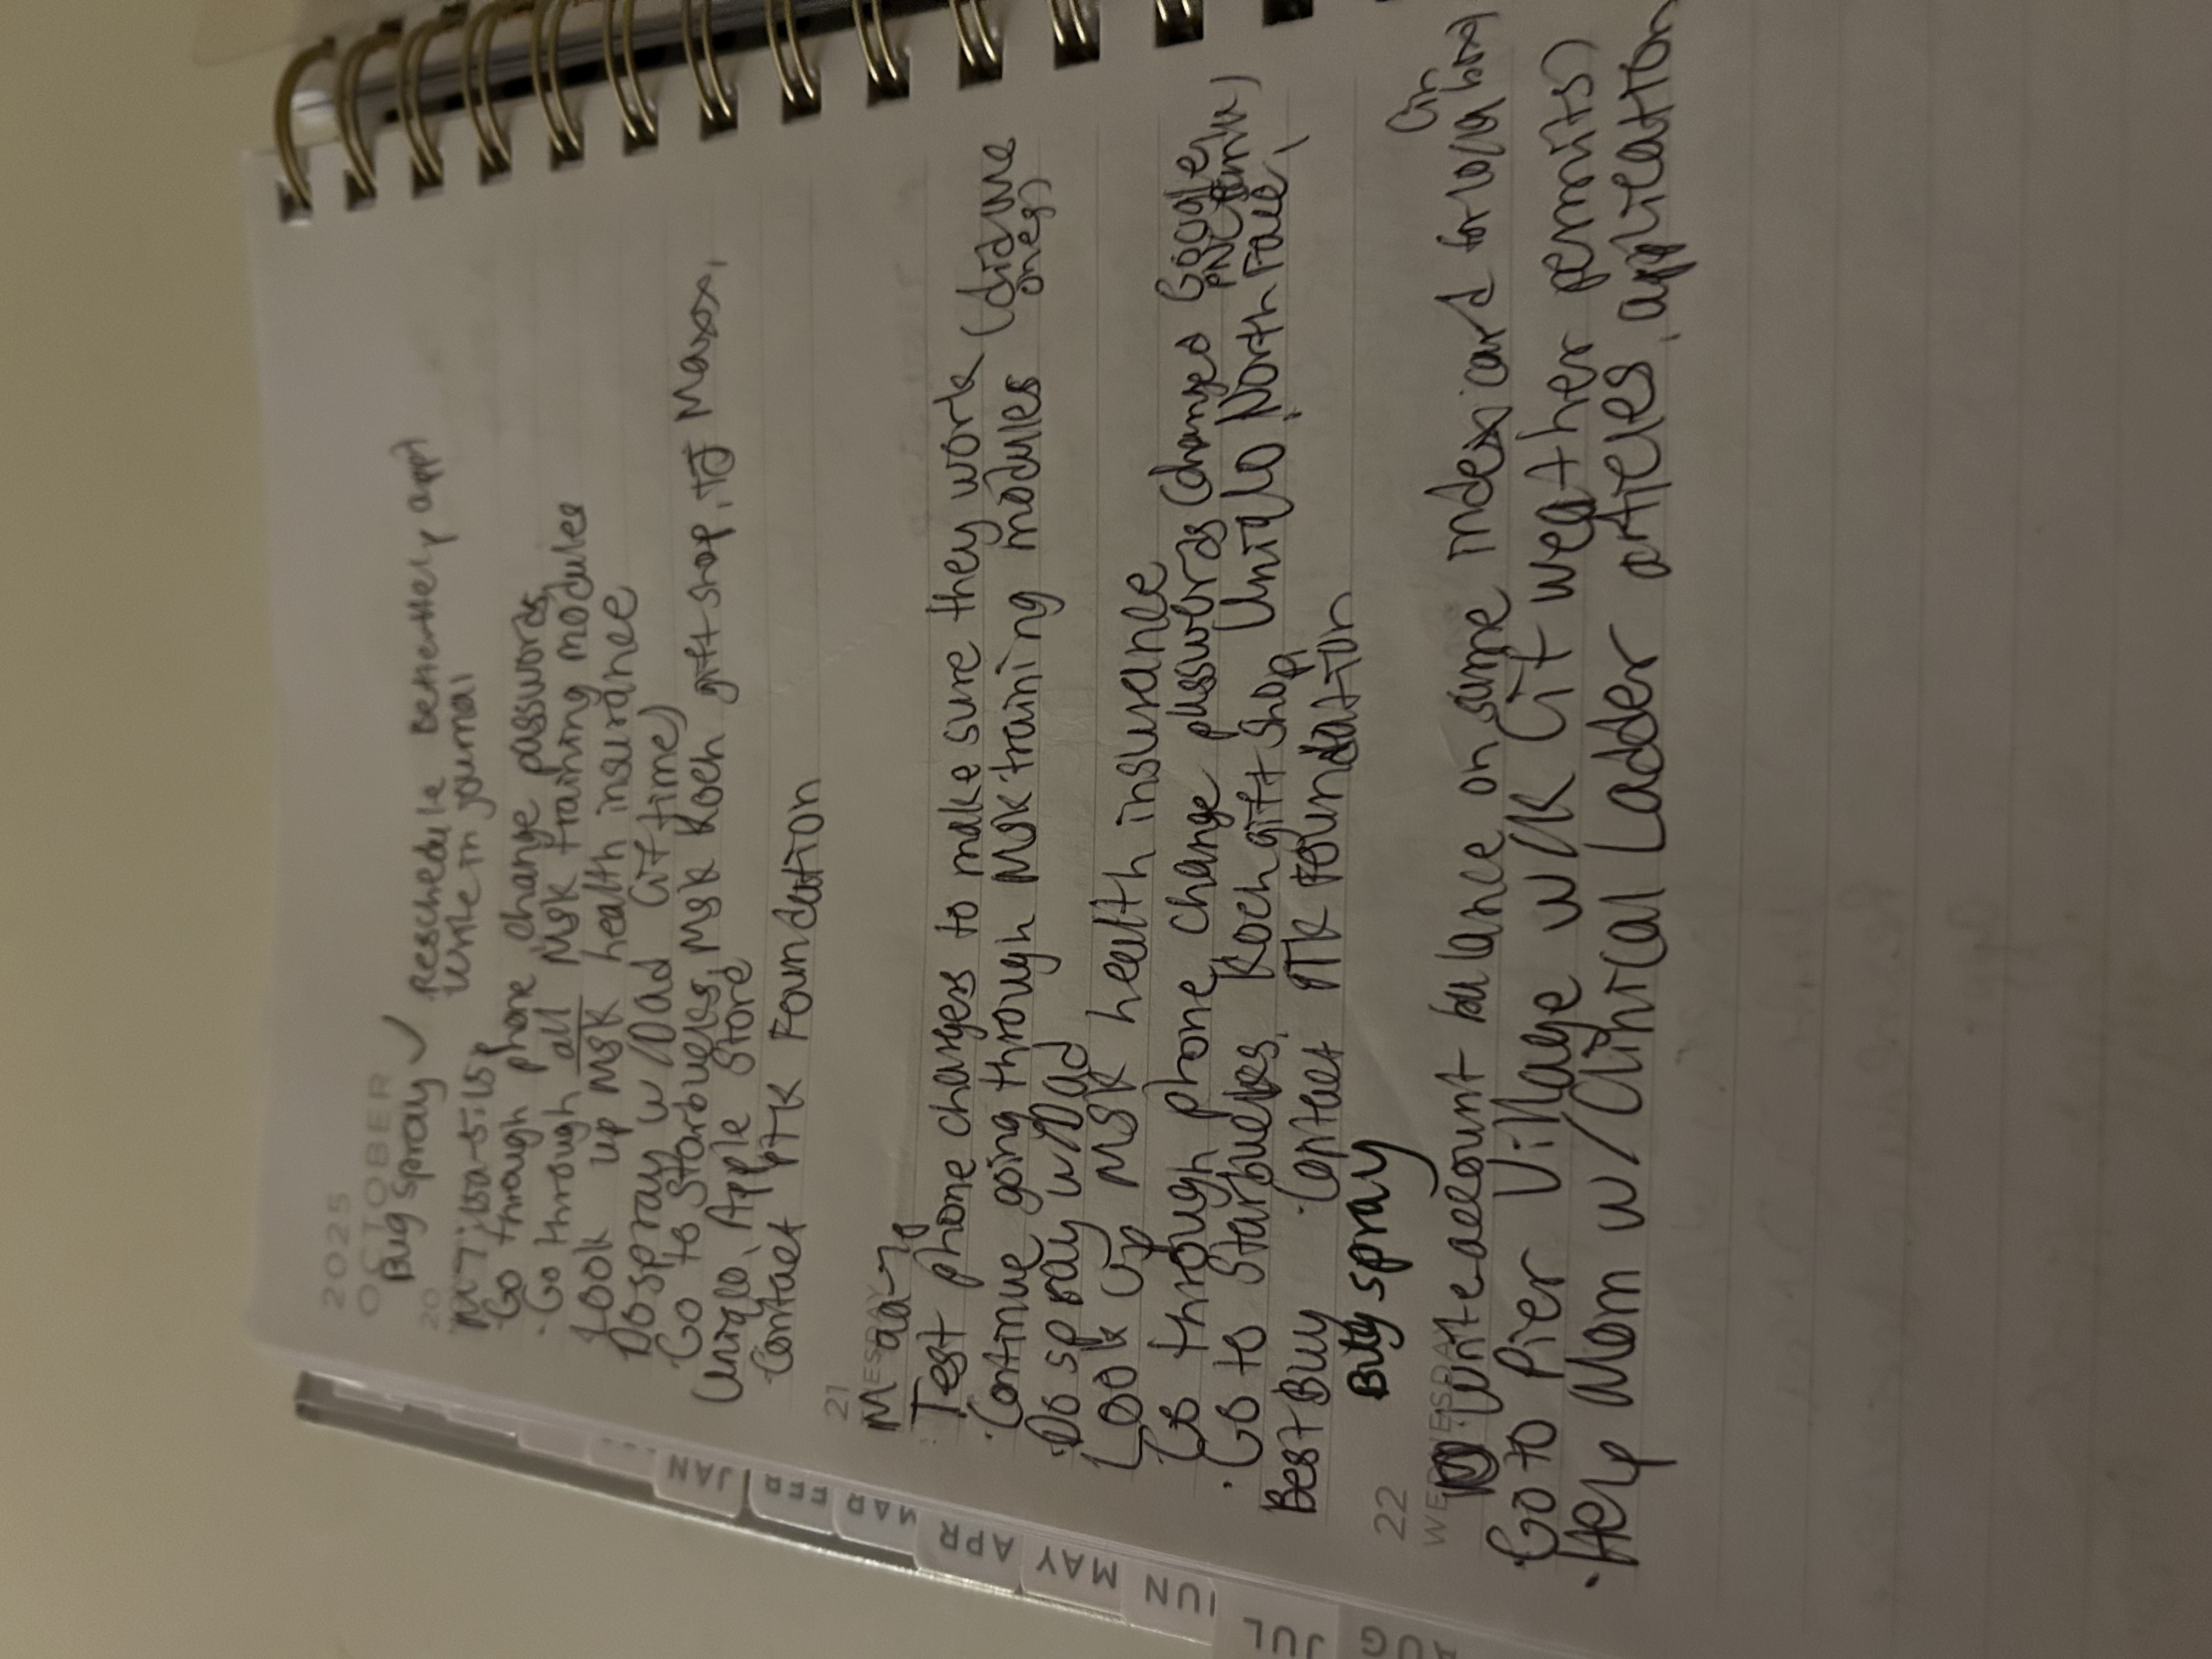 2025
OCTOBER
Bug spray ✓ Reschedule BetterHelp appt
20
Write in journal
Go through phone change passwords
· Go through all MSK training modules
Look up MSK health insurance
Do spray w/Dad (if time)
Go to Starbucks, MSK Koch gift shop, TJ Maxx,
Uniqlo, Apple Store
Contact PTK Foundation
21
M
Test phone changes to make sure they work (did one
· Continue going through MSK training modules ones)
· Do spray w/Dad
Look up MSK health insurance
Go through phone change passwords (changed Google,
· Go to Starbucks, Koch gift shop, Uniqlo, North Face,
Best Buy · Contact PTK Foundation
Buy spray
22
WEDNESDAY
· Write account balance on same index card for
Go to Pier Village w/K (if weather permits)
· Help Mom w/Clinical Ladder articles, application
JAN
FEB
MAR
APR
MAY
JUN
JUL
AUG